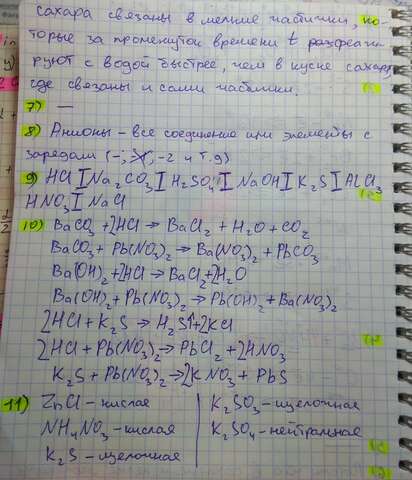 сахара связаны в мелкие частички, ко-
торые за промежуток времени t разреаги-
руют с водой быстрее, чем в куске сахара,
где связаны и сами частички.
7) —
8) Анионы – все соединение или элементы с
зарядами (-; -2 и т.д)
9) HCl I Na₂CO₃ I H₂SO₄ I NaOH I K₂S I AlCl₃
HNO₃ I NaCl
10) BaCO₃ + 2HCl → BaCl₂ + H₂O + CO₂
BaCO₃ + Pb(NO₃)₂ → Ba(NO₃)₂ + PbCO₃
Ba(OH)₂ + 2HCl → BaCl₂ + 2H₂O
Ba(OH)₂ + Pb(NO₃)₂ → Pb(OH)₂ + Ba(NO₃)₂
2HCl + K₂S → H₂S↑ + 2KCl
2HCl + Pb(NO₃)₂ → PbCl₂ + 2HNO₃
K₂S + Pb(NO₃)₂ → 2KNO₃ + PbS
11) ZnCl – кислая
NH₄NO₃ – кислая
K₂S – щелочная
K₂SO₃ – щелочная
K₂SO₄ – нейтральная